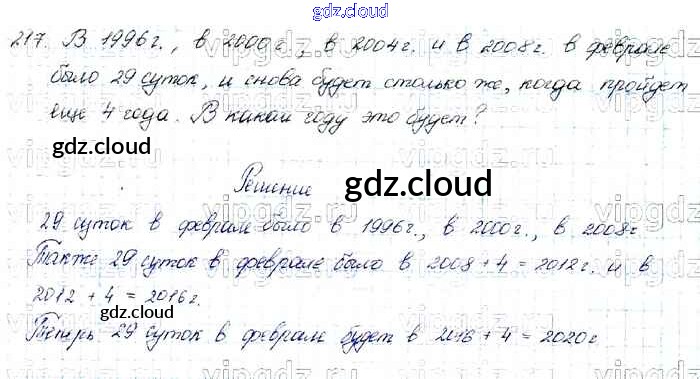 gdz.cloud
217. В 1996г., в 2000г., в 2004г. и в 2008г. в феврале
было 29 суток, и снова будет столько же, когда пройдет
еще 4 года. В каком году это будет?
gdz.cloud
Решение
gdz.cloud
29 суток в феврале было в 1996г., в 2000г., в 2008г
Также 29 суток в феврале было в 2008 + 4 = 2012г. и в
2012 + 4 = 2016г.
gdz.cloud
Теперь 29 суток в феврале будет в 2016 + 4 = 2020г